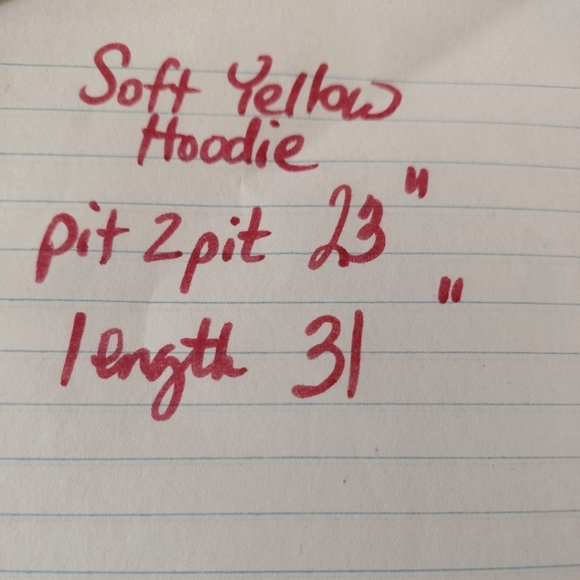 Soft Yellow
Hoodie
pit 2 pit 23"
length 31"